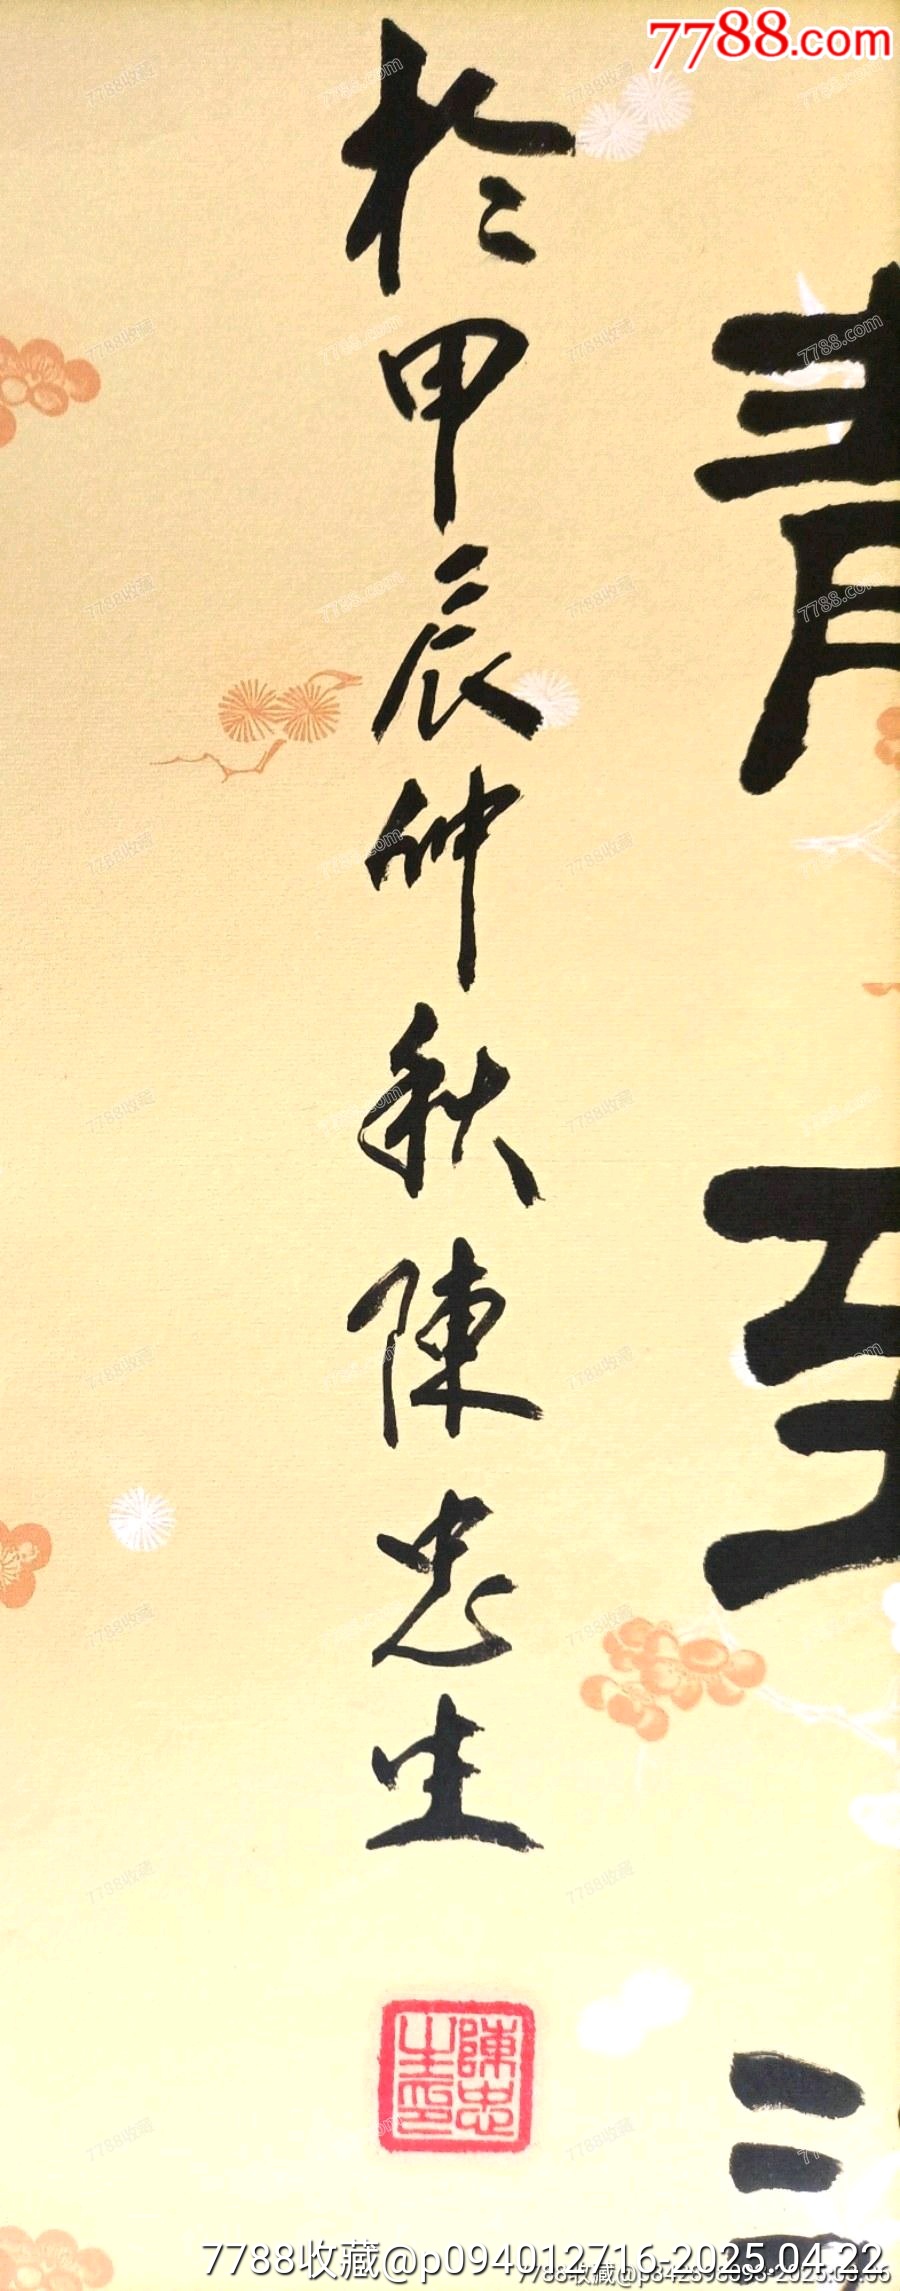 7788.com
青
至
於甲辰仲秋陳忠生
陳忠
生印
7788收藏@p094012716-2025.04.22